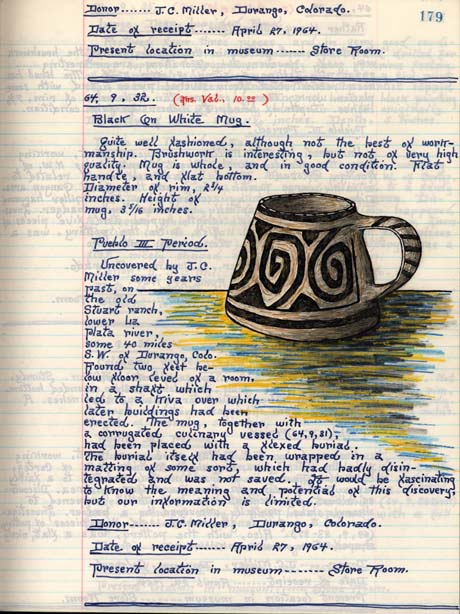 Donor....... J.C. Miller, Durango, Colorado.
179
Date of receipt------- April 27, 1964.
Present location in museum------- Store Room.
64, 9, 32. (ins. Val., 10.00)
Black On White Mug.
Quite well fashioned, although not the best of work-
manship. Brushwork is interesting, but not of very high
quality. Mug is whole, and in good condition. Flat
handle, and flat bottom.
Diameter of rim, 2 3/4
inches. Height of
mug, 3 5/16 inches.
Pueblo III Period.
Uncovered by J.C.
Miller some years
past, on
the old
Stuart ranch,
lower La
Plata river,
some 40 miles
S.W. of Durango, Colo.
Found two feet be-
low floor level of a room,
in a shaft which
led to a Kiva over which
later buildings had been
erected. The mug, together with
a corrugated culinary vessel (64,9,31),
had been placed with a flexed burial.
The burial itself had been wrapped in a
matting of some sort, which had badly disin-
tegrated and was not saved. It would be fascinating
to know the meaning and potential of this discovery,
but our information is limited.
Donor....... J.C. Miller, Durango, Colorado.
Date of receipt------ April 27, 1964.
Present location in museum------- Store Room.